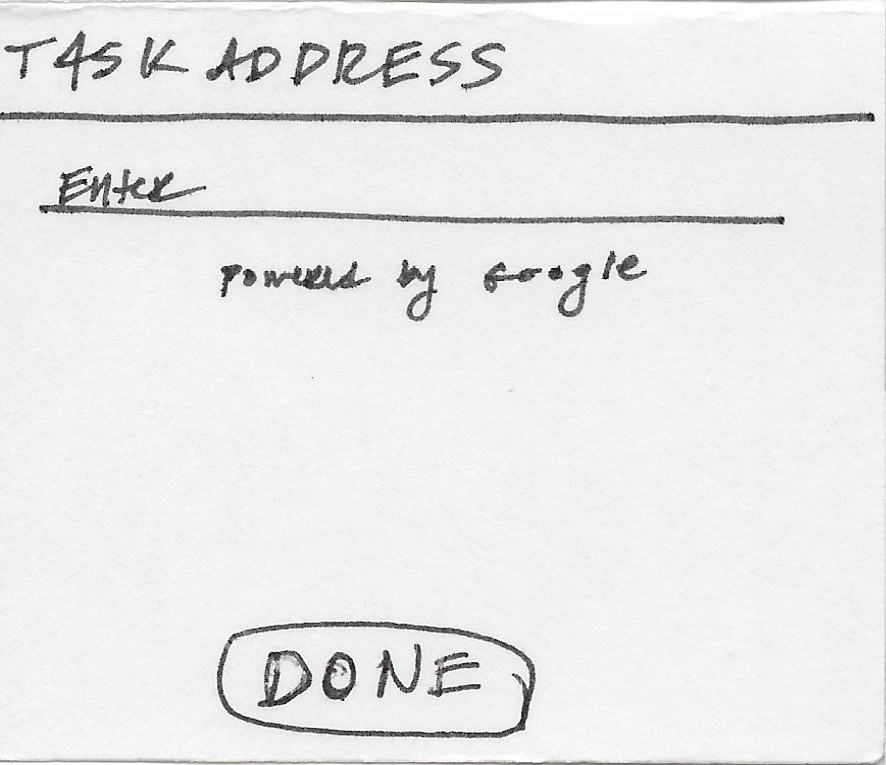 TASK ADDRESS
Enter
powered by Google
DONE